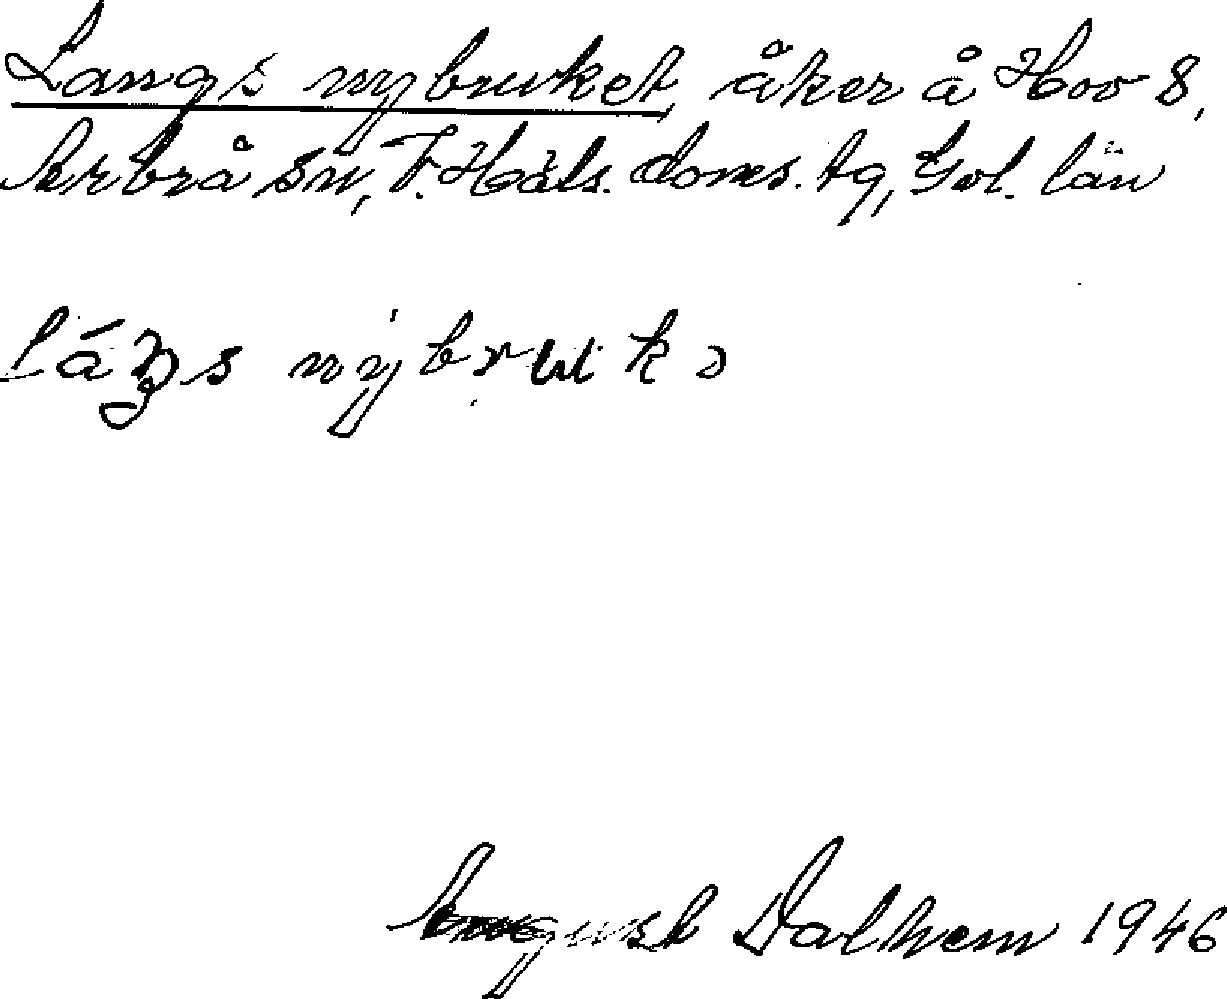 Langs nybruket, åker å Hov 8,
Arbrå sn, V. Häls. doms. tg, Gvl. län
láŋs nybruk
August Dalhem 1946